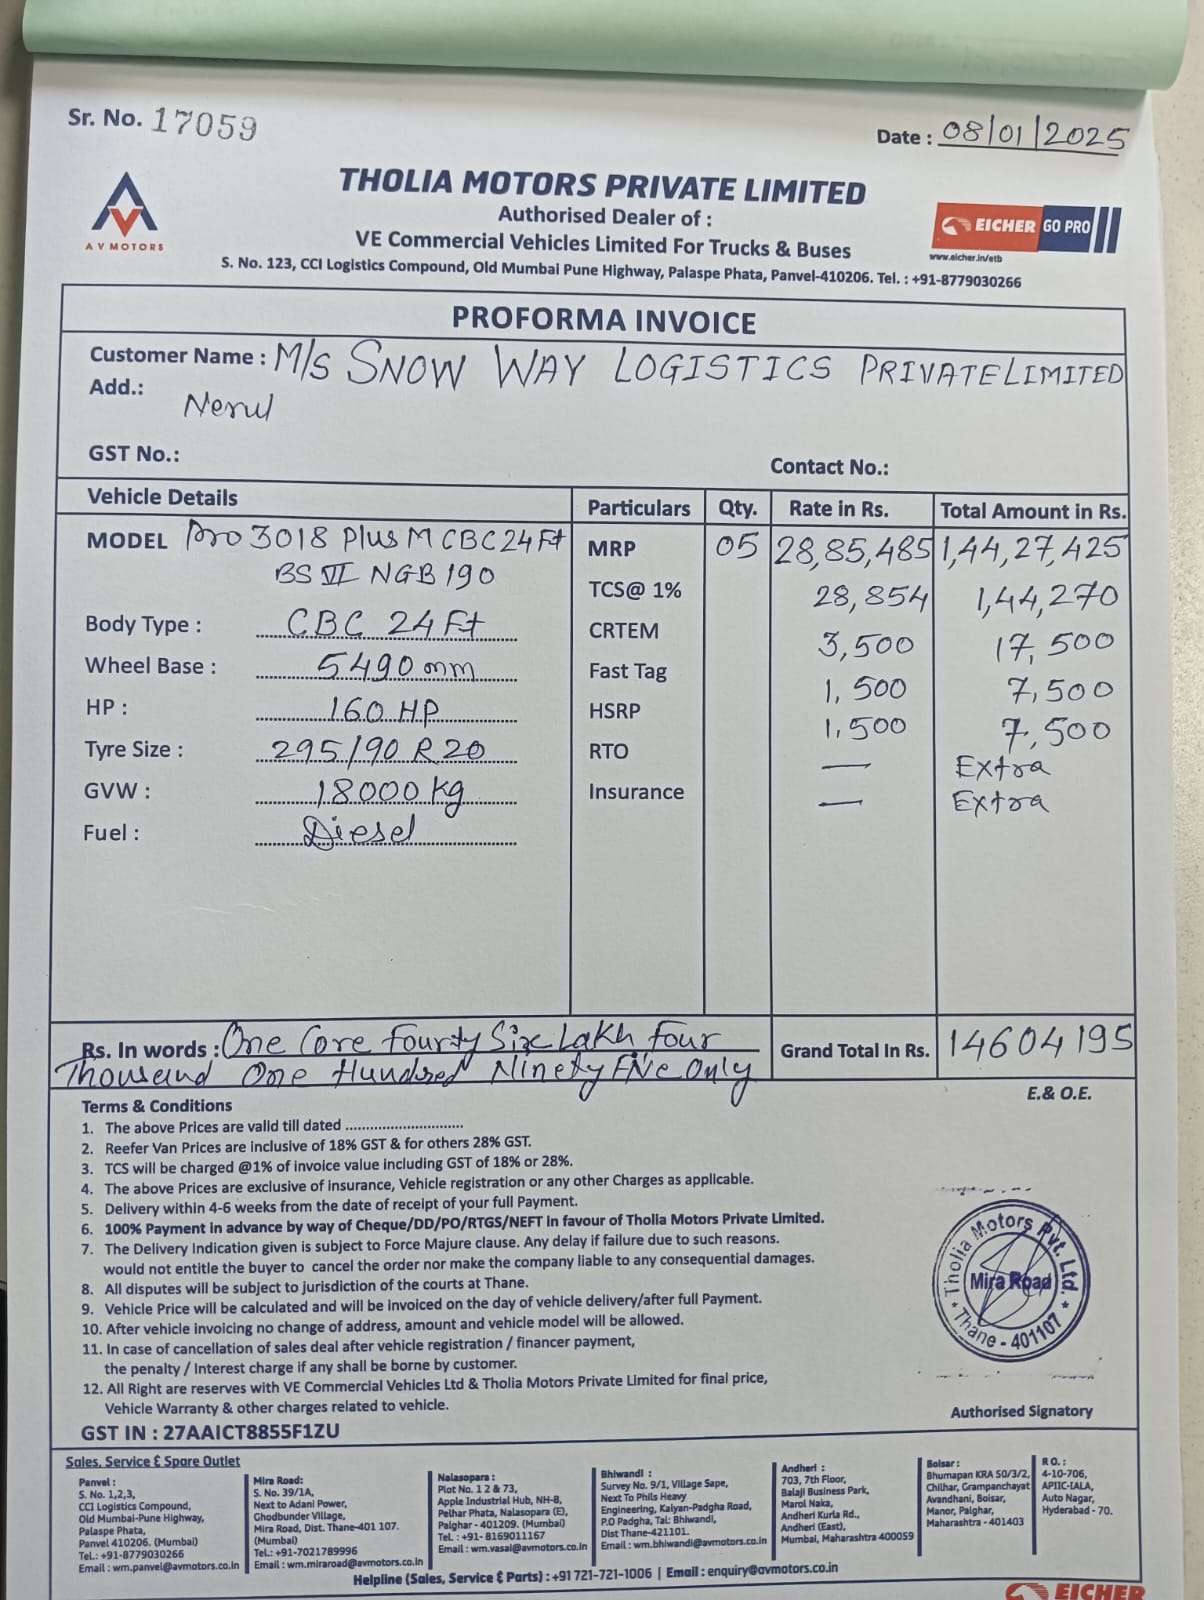 Sr. No. 17059
Date : 08/01/2025
A V MOTORS
THOLIA MOTORS PRIVATE LIMITED
Authorised Dealer of :
VE Commercial Vehicles Limited For Trucks & Buses
EICHER GO PRO
www.eicher.in/etb
S. No. 123, CCI Logistics Compound, Old Mumbai Pune Highway, Palaspe Phata, Panvel-410206. Tel. : +91-8779030266
PROFORMA INVOICE
Customer Name : M/s SNOW WAY LOGISTICS PRIVATE LIMITED
Add.: Nerul
GST No.:
Contact No.:
Vehicle Details Particulars Qty. Rate in Rs. Total Amount in Rs.
MODEL Pro 3018 Plus M CBC 24 Ft MRP 05 28,85,485 1,44,27,425
BS VI NGB 190
TCS@ 1% 28,854 1,44,270
Body Type : CBC 24 Ft CRTEM 3,500 17,500
Wheel Base : 5490 mm Fast Tag 1,500 7,500
HP : 160 HP HSRP 1,500 7,500
Tyre Size : 295/90 R 20 RTO — Extra
GVW : 18000 kg Insurance — Extra
Fuel : Diesel
Rs. In words : One Core Fourty Six Lakh Four
Thousand One Hundred Ninety Five Only
Grand Total In Rs. 14604195
E.& O.E.
Terms & Conditions
1. The above Prices are valid till dated ..............................
2. Reefer Van Prices are inclusive of 18% GST & for others 28% GST.
3. TCS will be charged @1% of invoice value including GST of 18% or 28%.
4. The above Prices are exclusive of insurance, Vehicle registration or any other Charges as applicable.
5. Delivery within 4-6 weeks from the date of receipt of your full Payment.
6. 100% Payment in advance by way of Cheque/DD/PO/RTGS/NEFT in favour of Tholia Motors Private Limited.
7. The Delivery Indication given is subject to Force Majure clause. Any delay if failure due to such reasons.
would not entitle the buyer to cancel the order nor make the company liable to any consequential damages.
8. All disputes will be subject to jurisdiction of the courts at Thane.
9. Vehicle Price will be calculated and will be invoiced on the day of vehicle delivery/after full Payment.
10. After vehicle invoicing no change of address, amount and vehicle model will be allowed.
11. In case of cancellation of sales deal after vehicle registration / financer payment,
the penalty / Interest charge if any shall be borne by customer.
12. All Right are reserves with VE Commercial Vehicles Ltd & Tholia Motors Private Limited for final price,
Vehicle Warranty & other charges related to vehicle.
Tholia Motors Pvt. Ltd.
Mira Road
Thane - 401107
Authorised Signatory
GST IN : 27AAICT8855F1ZU
Sales, Service & Spare Outlet
Panvel :
S. No. 1,2,3,
CCI Logistics Compound,
Old Mumbai-Pune Highway,
Palaspe Phata,
Panvel 410206. (Mumbai)
Tel.: +91-8779030266
Email : wm.panvel@avmotors.co.in
Mira Road:
S. No. 39/1A,
Next to Adani Power,
Ghodbunder Village,
Mira Road, Dist. Thane-401 107.
(Mumbai)
Tel.: +91-7021789996
Email : wm.miraroad@avmotors.co.in
Nalasopara :
Plot No. 1 2 & 73,
Apple Industrial Hub, NH-8,
Pelhar Phata, Nalasopara (E),
Palghar - 401209. (Mumbai)
Tel. : +91- 8169011167
Email : wm.vasai@avmotors.co.in
Bhiwandi :
Survey No. 9/1, Village Sape,
Next To Phils Heavy
Engineering, Kalyan-Padgha Road,
P.O Padgha, Tal: Bhiwandi,
Dist Thane-421101.
Email : wm.bhiwandi@avmotors.co.in
Andheri :
703, 7th Floor,
Balaji Business Park,
Marol Naka,
Andheri Kurla Rd.,
Andheri (East),
Mumbai, Maharashtra 400059
Boisar :
Bhumapan KRA 50/3/2,
Chilhar, Grampanchayat
Avandhani, Boisar,
Manor, Palghar,
Maharashtra - 401403
R O. :
4-10-706,
APIIC-IALA,
Auto Nagar,
Hyderabad - 70.
Helpline (Sales, Service & Parts) : +91 721-721-1006 | Email : enquiry@avmotors.co.in
EICHER